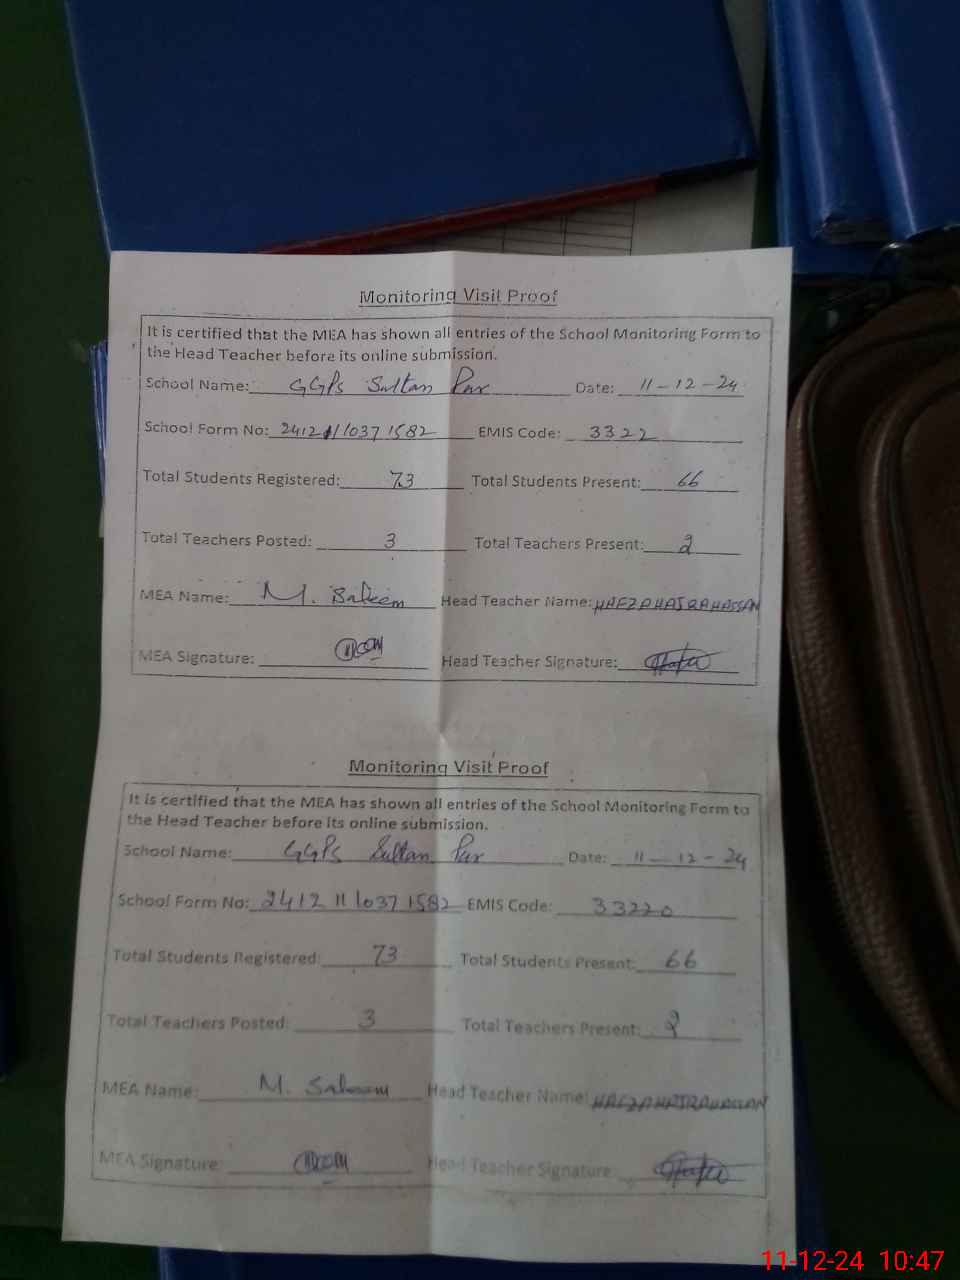 Monitoring Visit Proof
It is certified that the MEA has shown all entries of the School Monitoring Form to
the Head Teacher before its online submission.
School Name: GGPS Sultan Pur Date: 11-12-24
School Form No: 2412111037 1582 EMIS Code: 3322
Total Students Registered: 73 Total Students Present: 66
Total Teachers Posted: 3 Total Teachers Present: 2
MEA Name: M. Saleem Head Teacher Name: HAFZA HAJRA HASSAN
MEA Signature: Head Teacher Signature:
Monitoring Visit Proof
It is certified that the MEA has shown all entries of the School Monitoring Form to
the Head Teacher before its online submission.
School Name: GGPS Sultan Pur Date: 11-12-24
School Form No: 2412 11 1037 1582 EMIS Code: 33220
Total Students Registered: 73 Total Students Present: 66
Total Teachers Posted: 3 Total Teachers Present: 2
MEA Name: M. Saleem Head Teacher Name: HAFZA HAJRA HASSAN
MEA Signature: Head Teacher Signature:
11-12-24 10:47